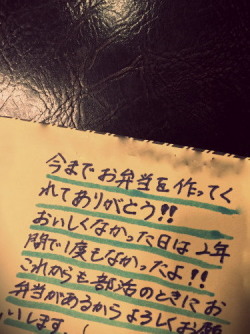 今までお弁当を作ってく
れてありがとう!!
おいしくなかった日は2年
間で1度もなかったよ!!
これからも部活のときにお
弁当があるからよろしくお願
いします。